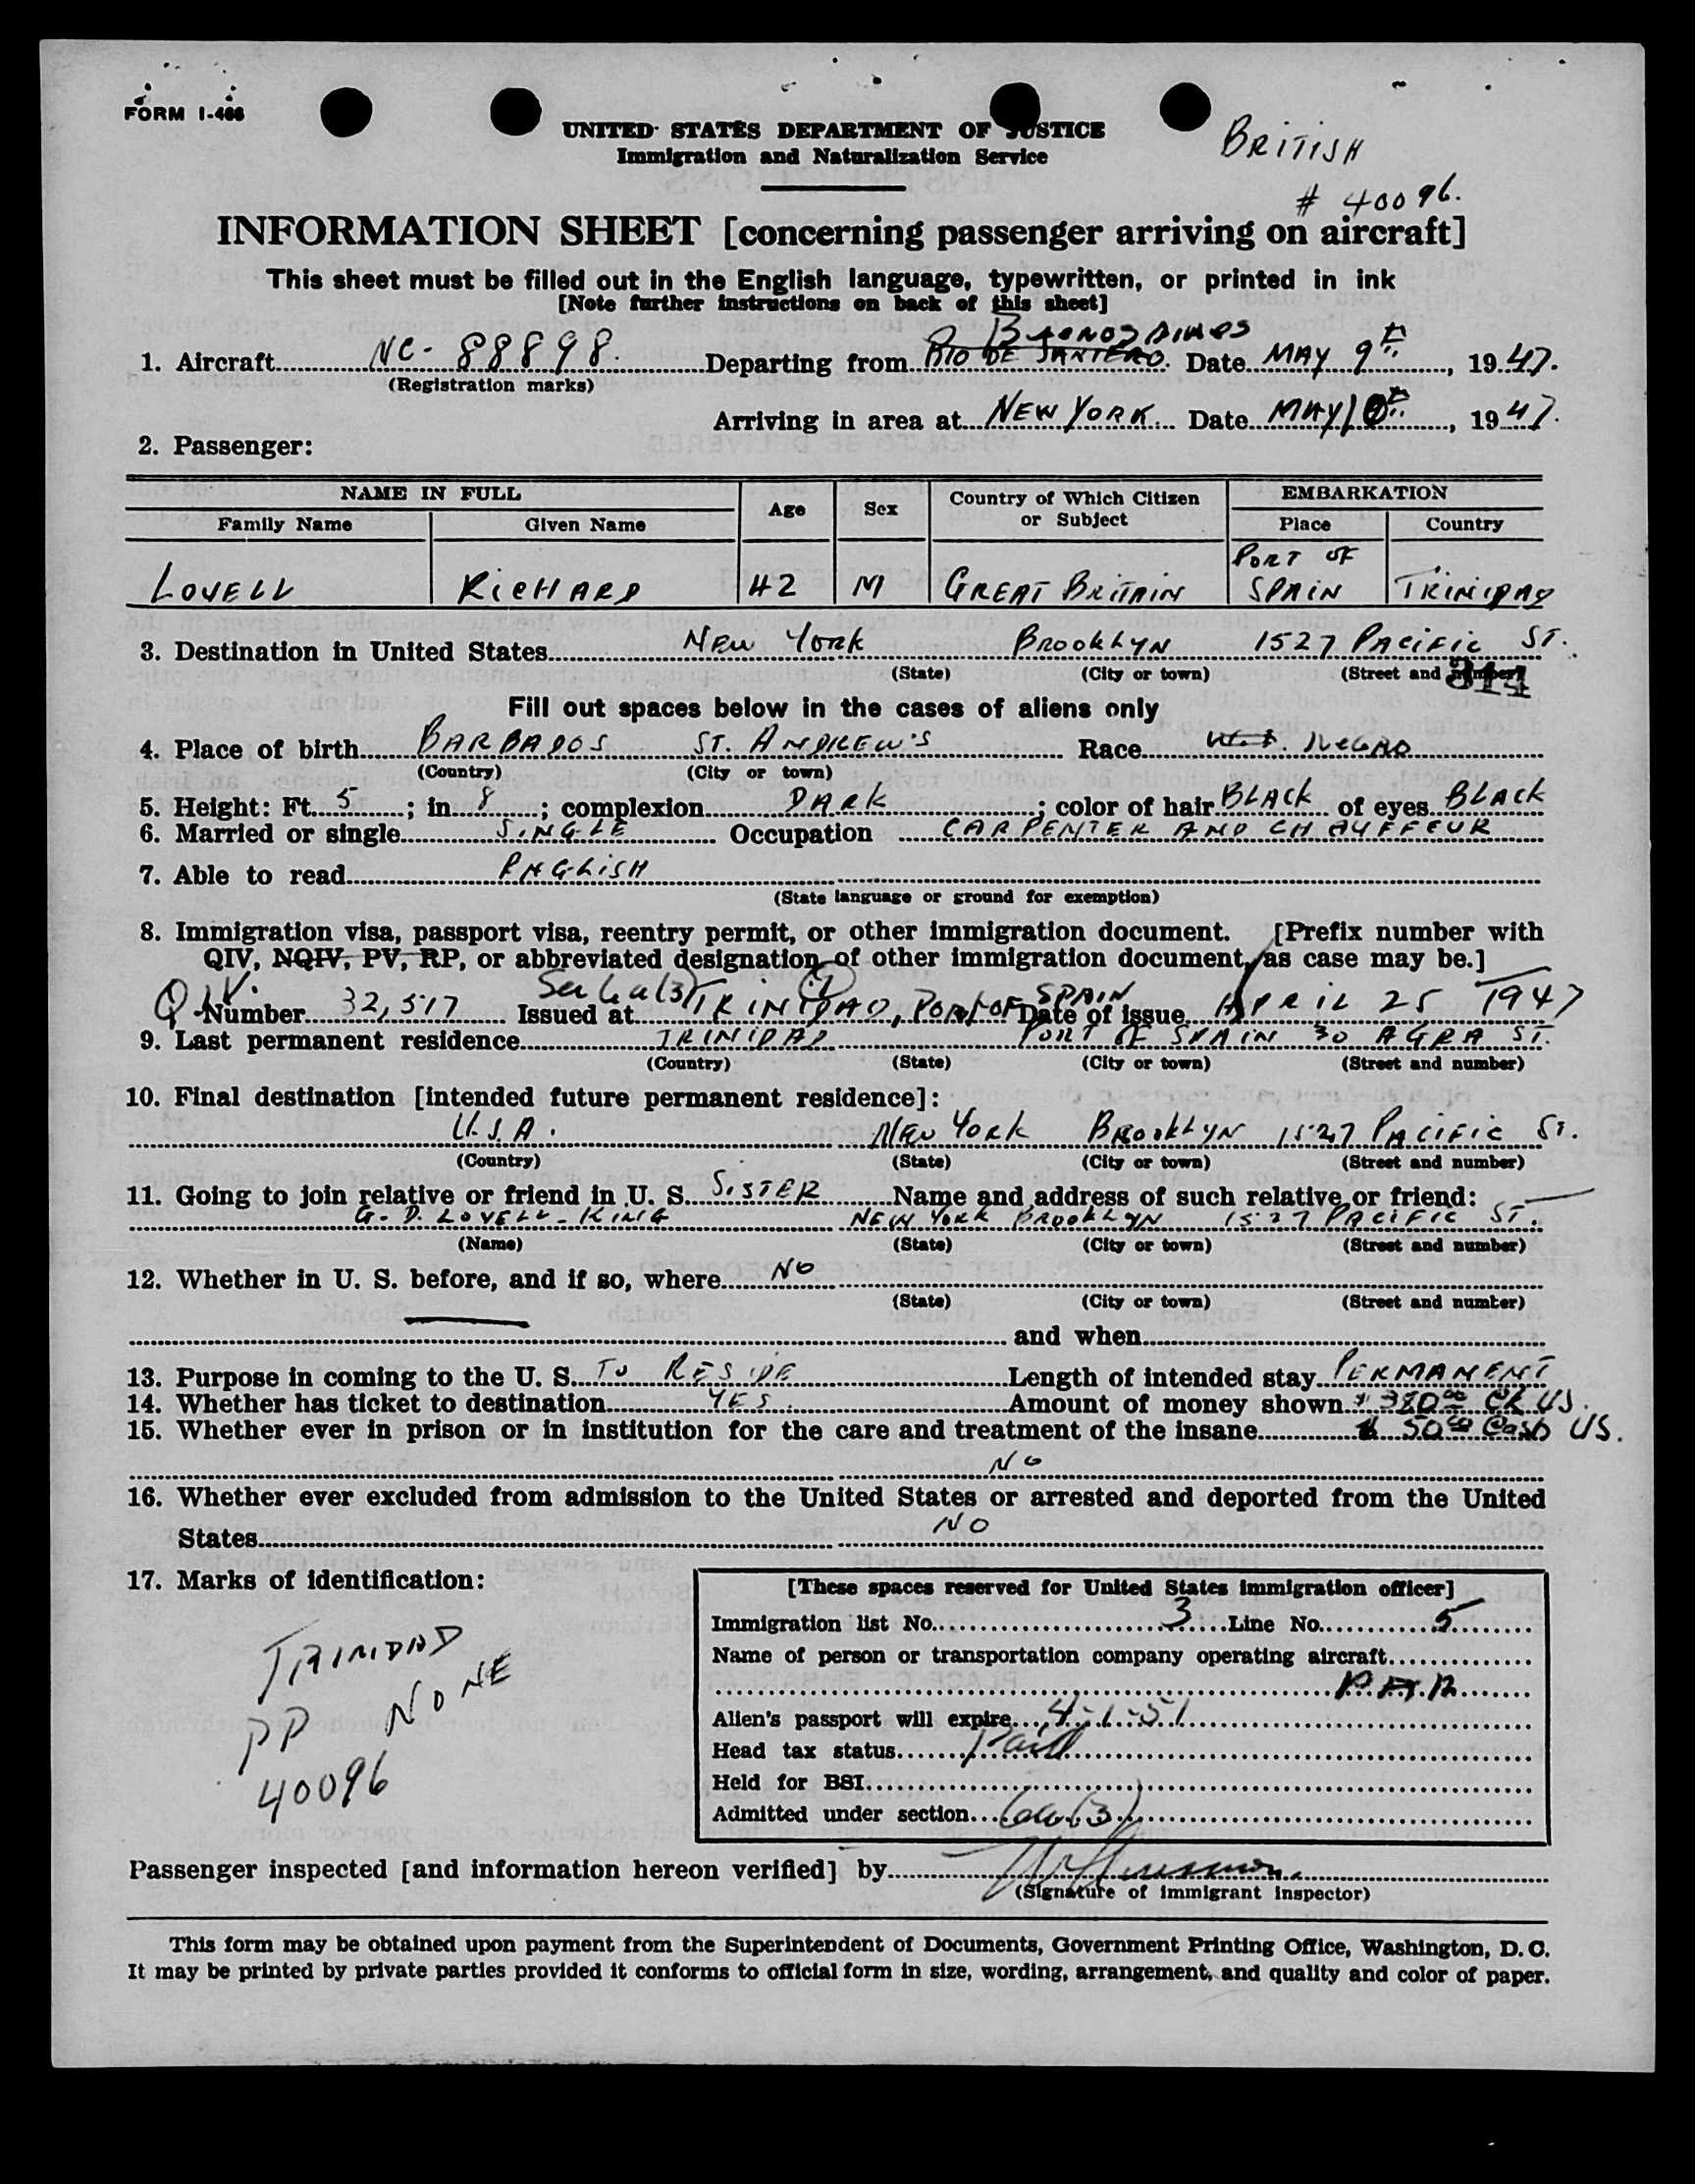 FORM I-466
UNITED STATES DEPARTMENT OF JUSTICE
Immigration and Naturalization Service
BRITISH
# 40096.
INFORMATION SHEET [concerning passenger arriving on aircraft]
This sheet must be filled out in the English language, typewritten, or printed in ink
[Note further instructions on back of this sheet]
BUENOS AIRES
1. Aircraft NC-88898. Departing from RIO DE JANIERO. Date MAY 9th, 1947.
(Registration marks)
Arriving in area at NEW YORK Date MAY 10th, 1947.
2. Passenger:
NAME IN FULL Age Sex Country of Which Citizen or Subject EMBARKATION
Family Name Given Name Place Country
LOVELL RICHARD 42 M GREAT BRITAIN PORT OF SPAIN TRINIDAD
3. Destination in United States New York BROOKLYN 1527 PACIFIC ST.
(State) (City or town) (Street and number)
314
Fill out spaces below in the cases of aliens only
4. Place of birth BARBADOS ST. ANDREW'S Race W.I. NEGRO
(Country) (City or town)
5. Height: Ft. 5; in. 8; complexion DARK; color of hair BLACK of eyes BLACK
6. Married or single SINGLE Occupation CARPENTER AND CHAUFFEUR
7. Able to read ENGLISH
(State language or ground for exemption)
8. Immigration visa, passport visa, reentry permit, or other immigration document. [Prefix number with
QIV, NQIV, PV, RP, or abbreviated designation of other immigration document, as case may be.]
QIV. Number 32,517 Issued at TRINIDAD, PORT OF SPAIN Date of issue APRIL 25 1947
9. Last permanent residence TRINIDAD PORT OF SPAIN 30 AGRA ST.
(Country) (State) (City or town) (Street and number)
10. Final destination [intended future permanent residence]:
U.S.A. NEW YORK BROOKLYN 1527 PACIFIC ST.
(Country) (State) (City or town) (Street and number)
11. Going to join relative or friend in U. S. SISTER Name and address of such relative or friend:
G. D. LOVELL-KING NEW YORK BROOKLYN 1527 PACIFIC ST.
(Name) (State) (City or town) (Street and number)
12. Whether in U. S. before, and if so, where NO
(State) (City or town) (Street and number)
and when
13. Purpose in coming to the U. S. TO RESIDE Length of intended stay PERMANENT
14. Whether has ticket to destination YES. Amount of money shown $ 380.00 Ck US.
15. Whether ever in prison or in institution for the care and treatment of the insane $ 50.00 Cash US.
NO
16. Whether ever excluded from admission to the United States or arrested and deported from the United
States NO
17. Marks of identification:
TRINIDAD
PP NONE
40096
[These spaces reserved for United States immigration officer]
Immigration list No. 3 Line No. 5
Name of person or transportation company operating aircraft
P.A.A.
Alien's passport will expire 4-1-51
Head tax status Paid
Held for BSI
Admitted under section
Passenger inspected [and information hereon verified] by
(Signature of immigrant inspector)
This form may be obtained upon payment from the Superintendent of Documents, Government Printing Office, Washington, D. C.
It may be printed by private parties provided it conforms to official form in size, wording, arrangement, and quality and color of paper.